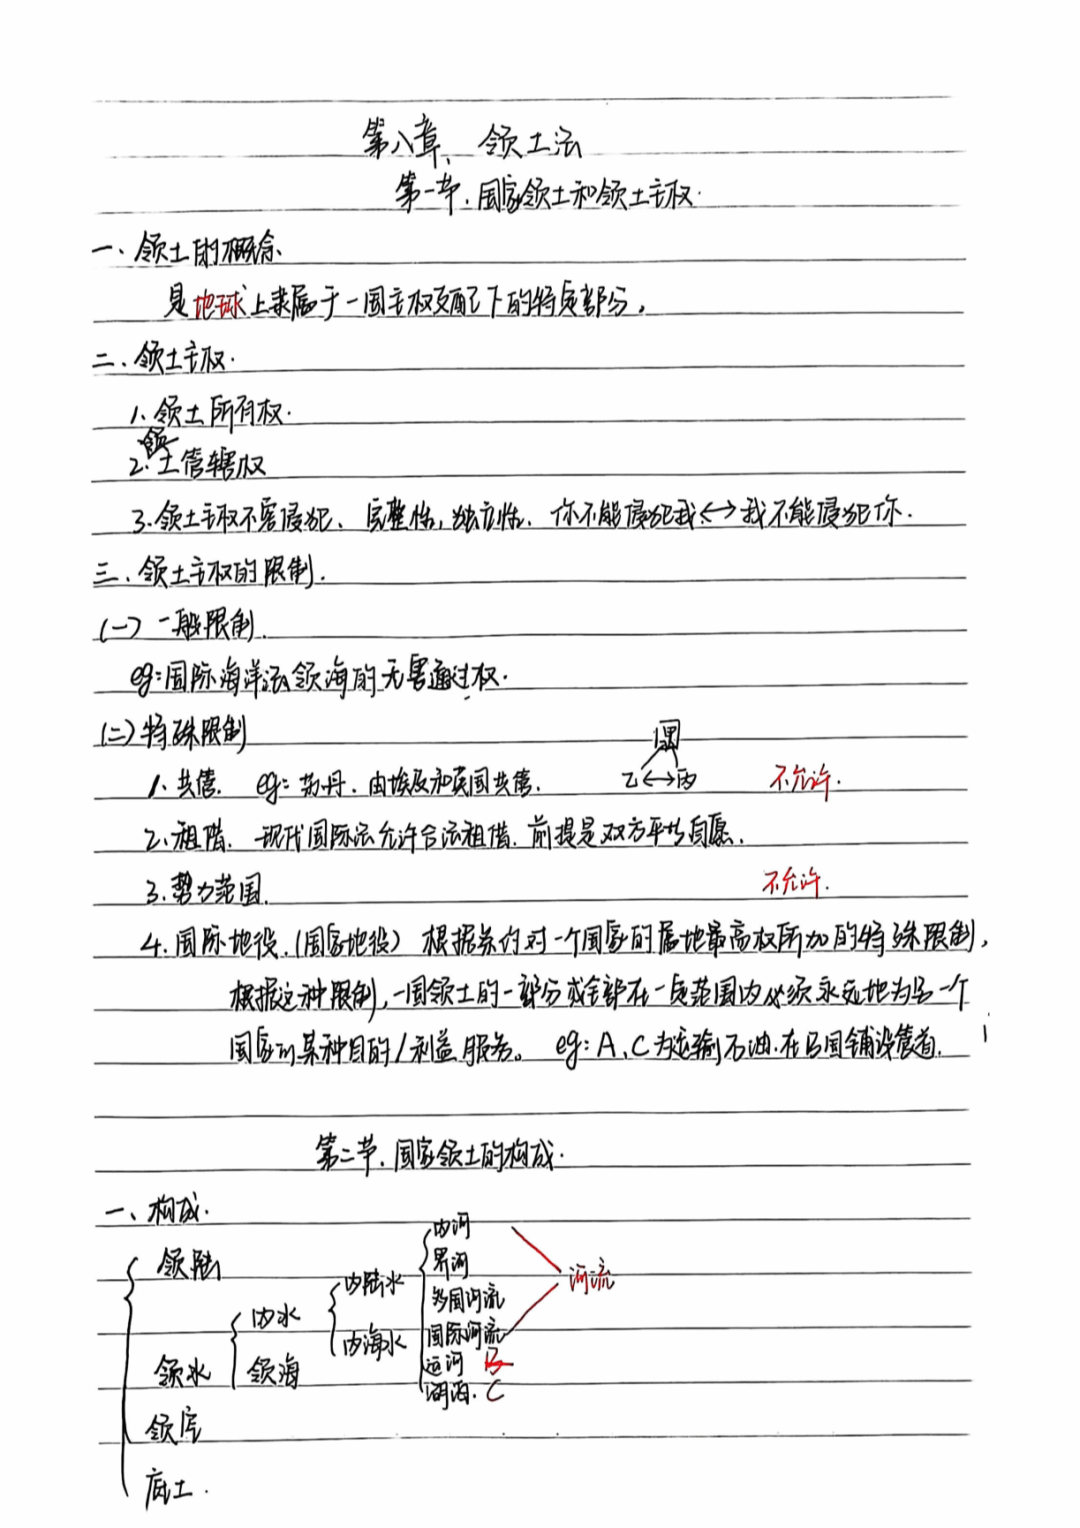 第八章、领土法
第一节.国家领土和领土主权.
一、领土的概念、
是地球上隶属于一国主权支配下的特定部分。
二、领土主权.
1、领土所有权.
2.领土管辖权
3.领土主权不容侵犯、完整性,独立性、你不能侵犯我<->我不能侵犯你.
三、领土主权的限制.
(一)一般限制.
eg:国际海洋法领海的无害通过权.
(二)特殊限制
1、共管. eg:苏丹.由埃及和英国共管. 乙<->丙 不允许.
2、租借. 现代国际法允许合法租借.前提是双方平等自愿.
3.势力范围. 不允许.
4.国际地役.(国家地役) 根据条约对一个国家的属地最高权所加的特殊限制,
根据这种限制,一国领土的一部分或全部在一定范围内必须永远地为另一个
国家的某种目的/利益服务。 eg:A、C为运输石油.在B国铺设管道.
第二节.国家领土的构成.
一、构成.
领陆
领水
内水
领海
内陆水
内海水
内河
界河
多国河流
国际河流
河流
运河 B
湖泊. C
领空
底土.